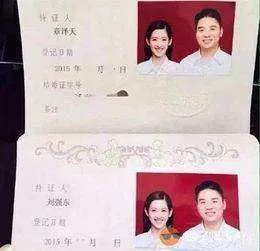 持 证 人
章泽天
登记日期
2015 年 月 日
结婚证字号
备注
持 证 人
刘强东
登记日期
2015 年